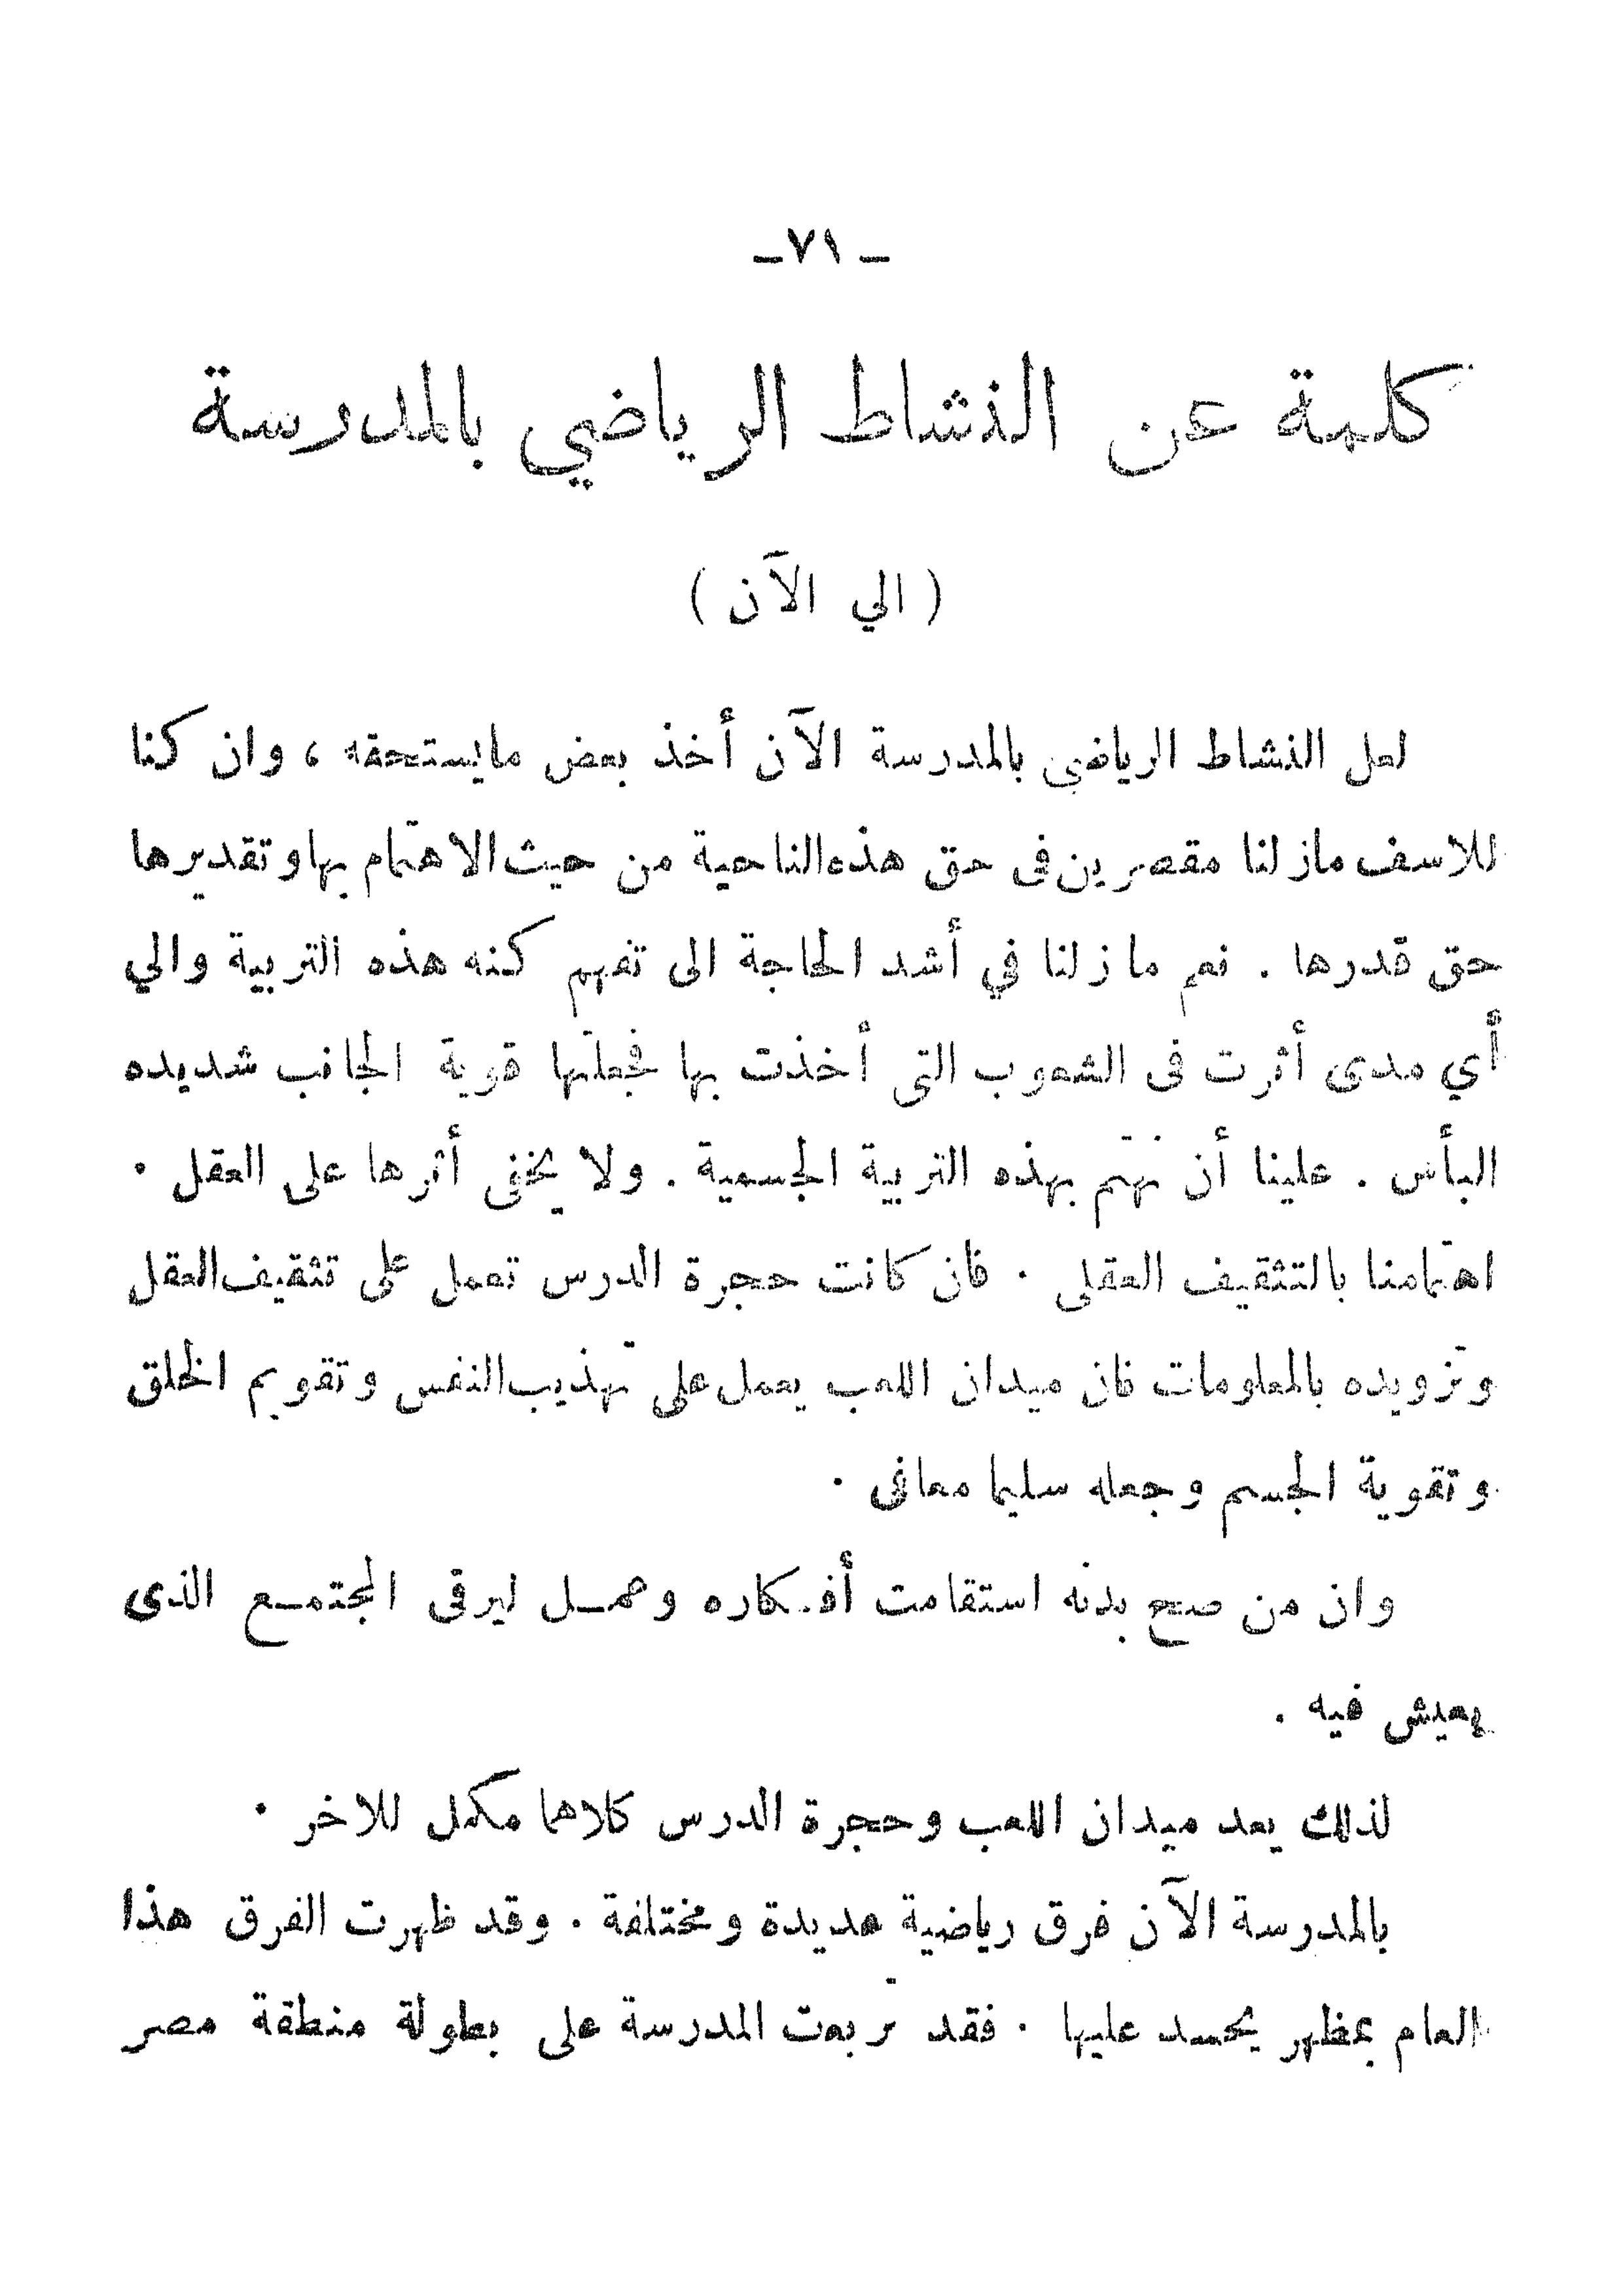 ـ ٧١ ـ
كلمة عن النشاط الرياضي بالمدرسة
( الي الآن )
لعل النشاط الرياضى بالمدرسة الآن أخذ بعض مايستحقه ، وان كنا
للاسف مازلنا مقصرين فى حق هذه الناحية من حيث الاهتمام بها وتقديرها
حق قدرها . نعم ما زلنا في أشد الحاجة الى تفهم كنه هذه التربية والي
أي مدى أثرت فى الشعوب التى أخذت بها فجعلتها قوية الجانب شديده
البأس . علينا أن نهتم بهذه التربية الجسمية . ولا يخفى أثرها على العقل .
اهتمامنا بالتثقيف العقلى . فان كانت حجرة الدرس تعمل على تثقيف العقل
وتزويده بالمعلومات فان ميدان اللعب يعمل على تهذيب النفس وتقويم الخلق
وتقوية الجسم وجعله سليما معافى .
وان من صح بدنه استقامت أفكاره وعمل ليرقى المجتمع الذى
يعيش فيه .
لذلك يعد ميدان اللعب وحجرة الدرس كلاهما مكمل للاخر .
بالمدرسة الآن فرق رياضية عديدة ومختلفة . وقد ظهرت الفرق هذا
العام بمظهر يحسد عليها . فقد تربعت المدرسة على بطولة منطقة مصر